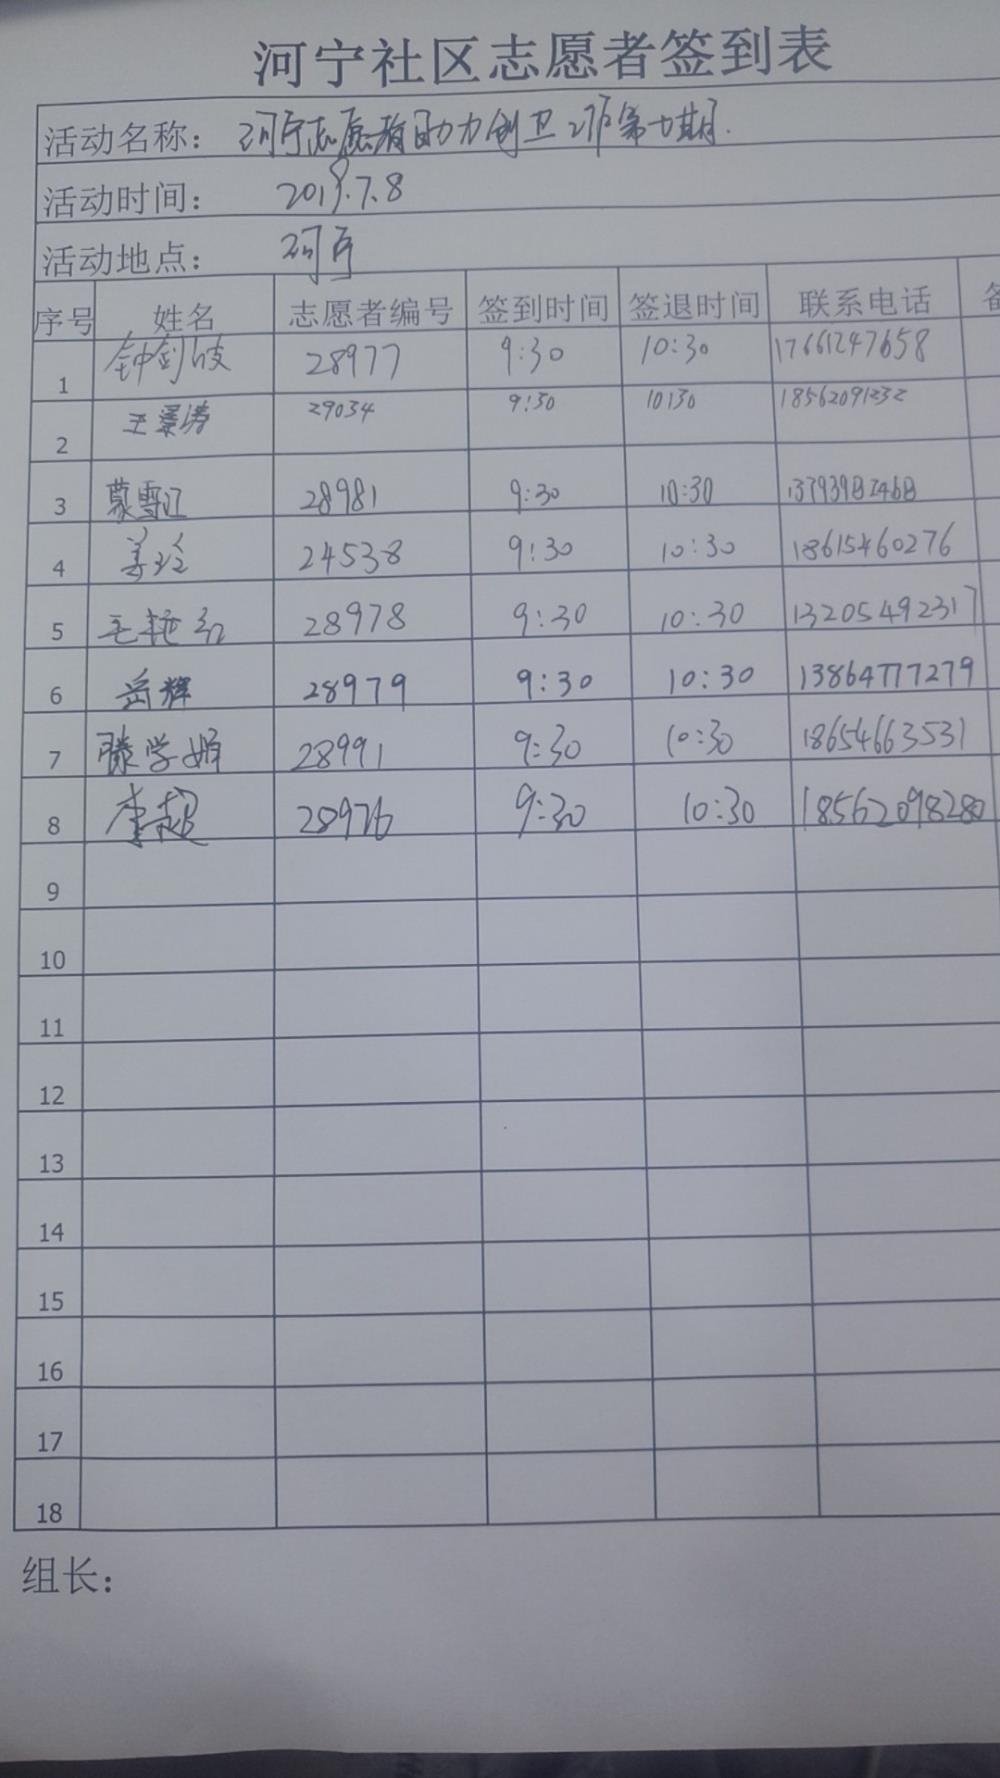 河宁社区志愿者签到表
活动名称： 河宁志愿者助力创卫工作第七期.
活动时间： 2019.7.8
活动地点： 河宁
序号 姓名 志愿者编号 签到时间 签退时间 联系电话
1 钟剑波 28977 9:30 10:30 17661247658
2 王景涛 29034 9:30 10:30 18562091232
3 蒙雪江 28981 9:30 10:30 13793982468
4 姜玲 24538 9:30 10:30 18615460276
5 毛艳红 28978 9:30 10:30 13205492317
6 岳辉 28979 9:30 10:30 13864777279
7 滕学娟 28991 9:30 10:30 18654663531
8 李超 28976 9:30 10:30 18562098280
9
10
11
12
13
14
15
16
17
18
组长：